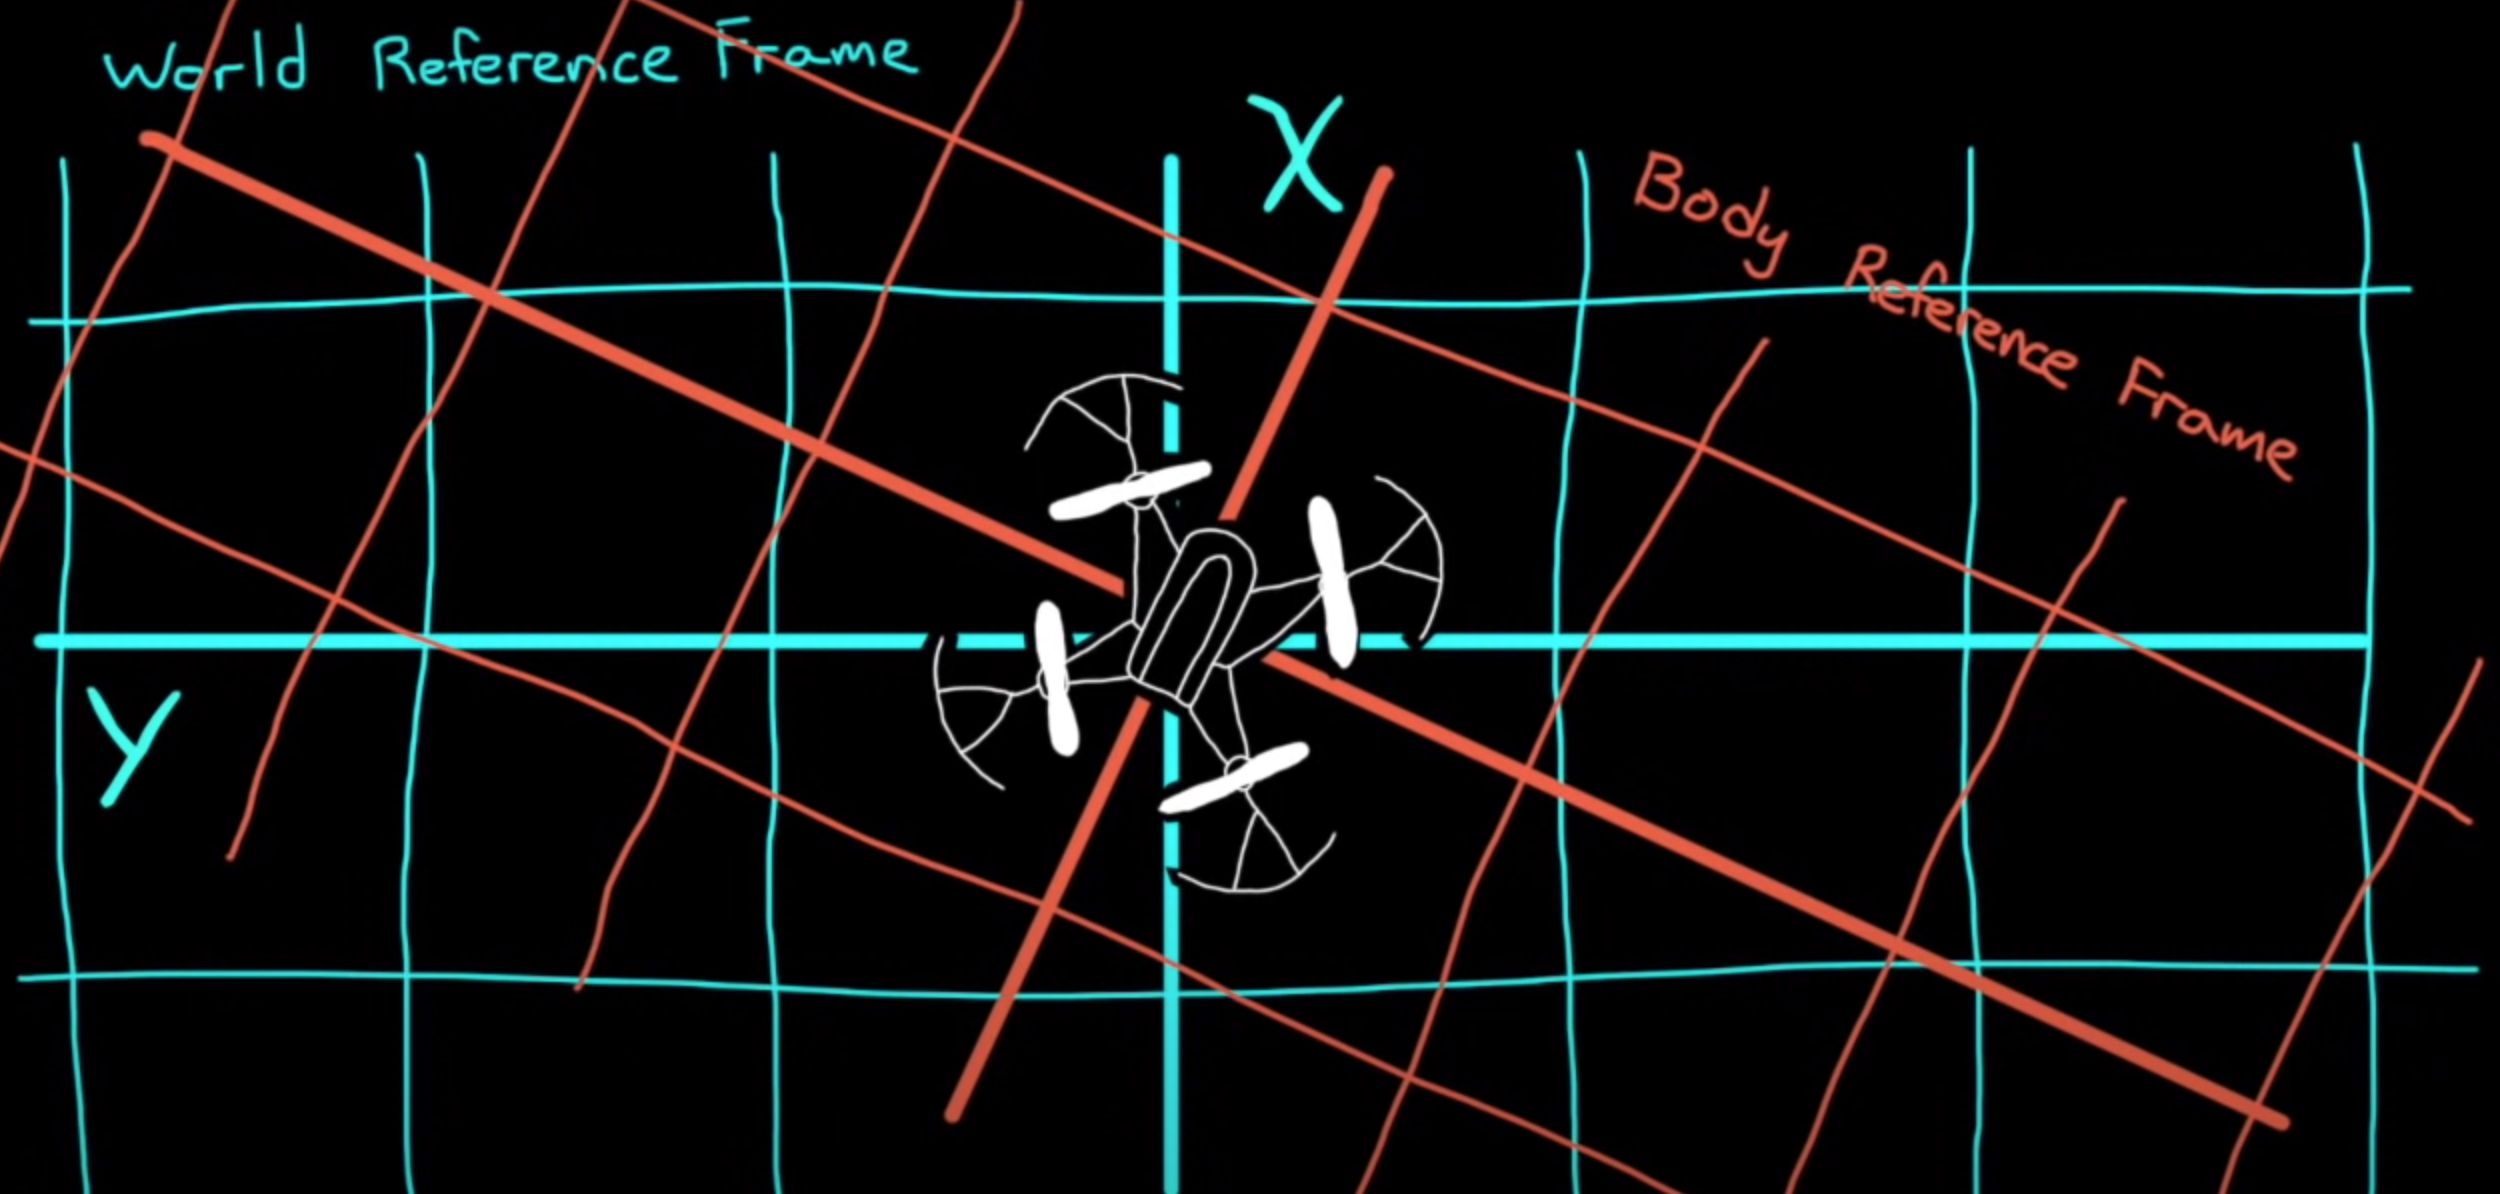 World Reference Frame
X
Body Reference Frame
Y